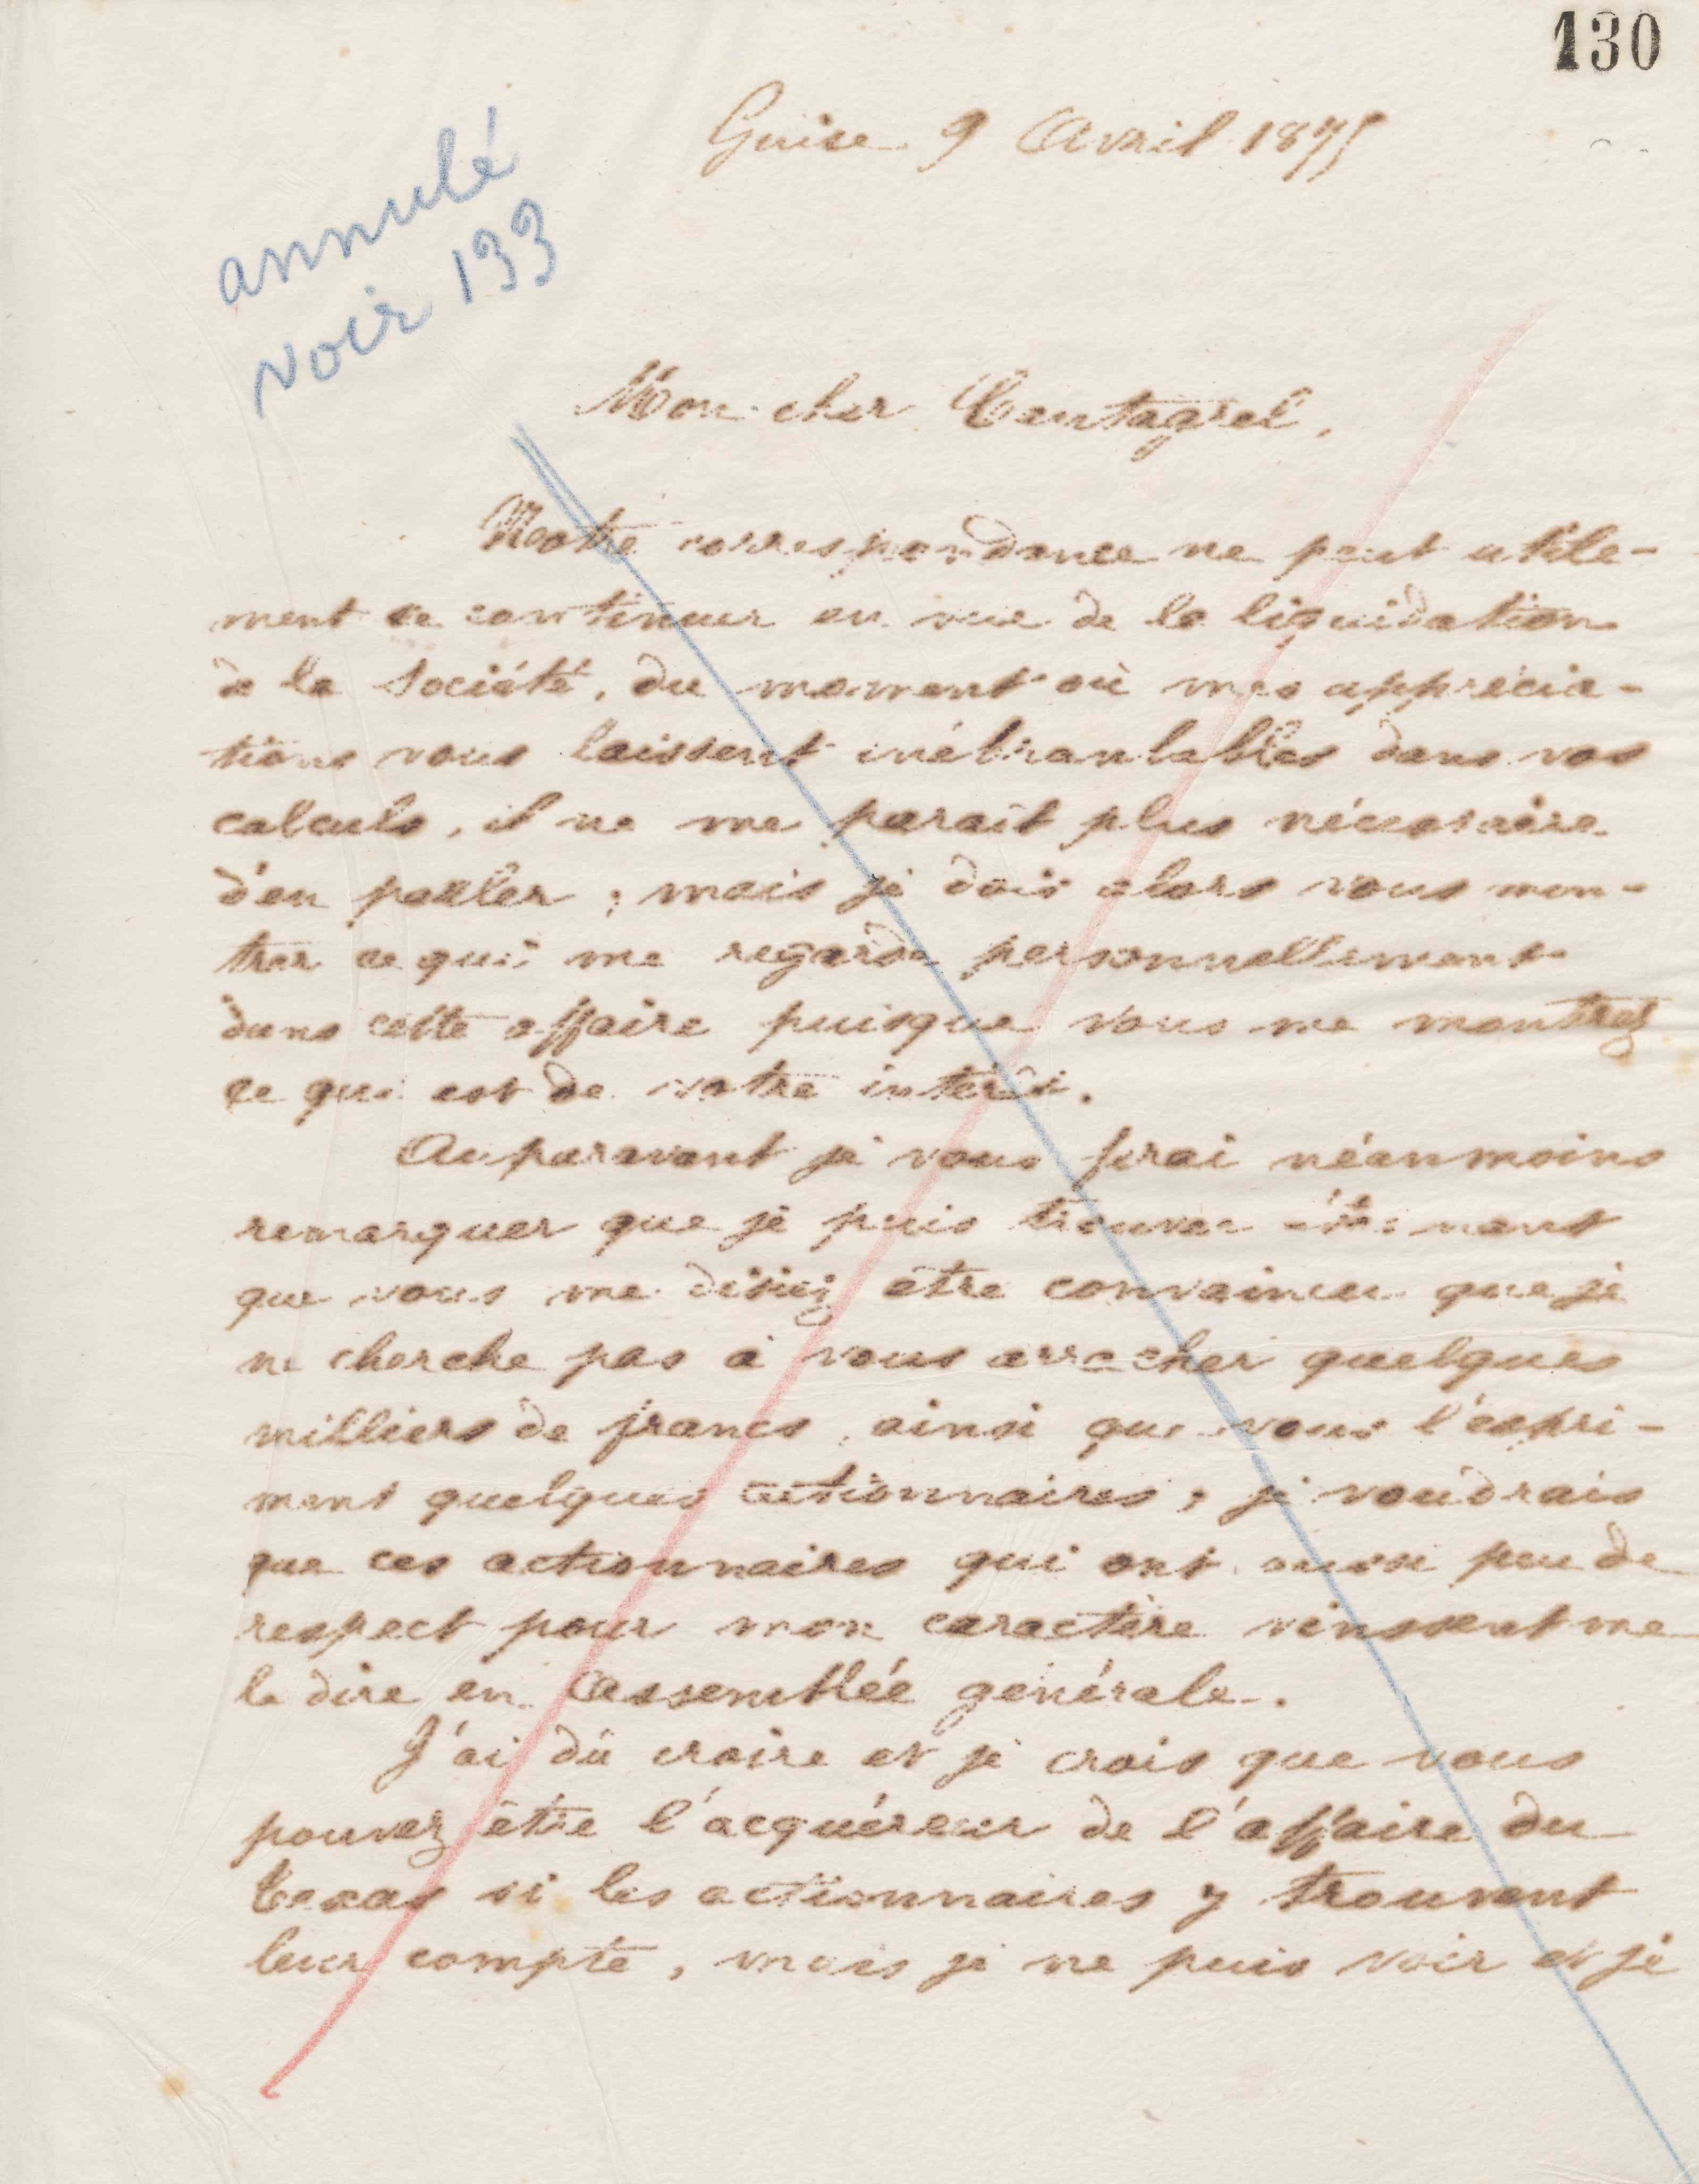 130
Guise 9 Avril 1875
annulé
voir 133
Mon cher Cantagrel,
Notre correspondance ne peut utile-
ment se continuer en vue de la liquidation
de la Société, du moment où mes apprécia-
tions vous laissent inébranlables dans vos
calculs, il ne me paraît plus nécessaire
d'en parler ; mais je dois alors vous mon-
trer ce qui me regarde personnellement
dans cette affaire puisque vous me montrez
ce qui est de votre intérêt.
Auparavant je vous ferai néanmoins
remarquer que je puis trouver
que vous me disiez être convaincu que je
ne cherche pas à vous arracher quelques
milliers de francs, ainsi que vous l'expri-
ment quelques actionnaires ; je voudrais
que ces actionnaires qui ont aussi peu de
respect pour mon caractère vinssent me
le dire en Assemblée générale.
J'ai dû croire et je crois que vous
pouvez être l'acquéreur de l'affaire du
Texas si les actionnaires y trouvent
leur compte, mais je ne puis voir et je